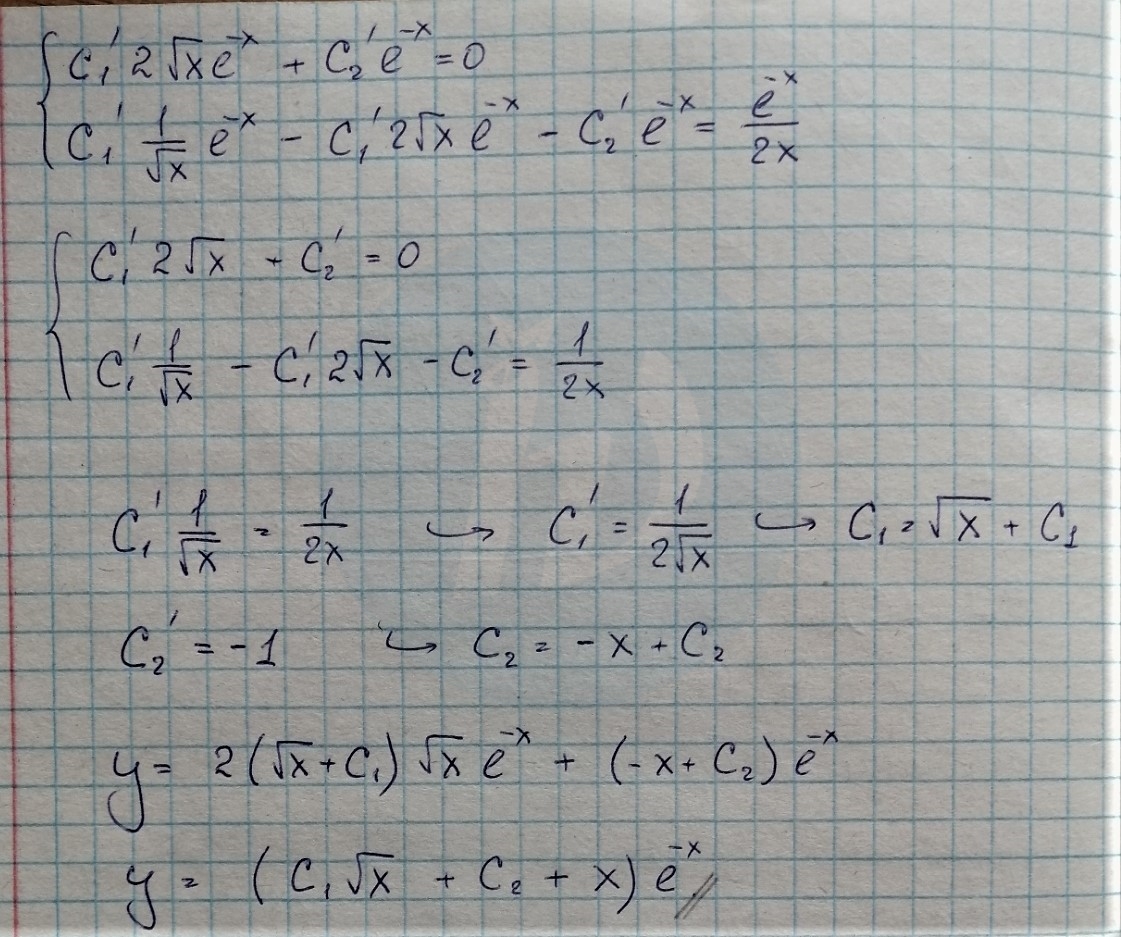 { C₁' 2√x e⁻ˣ + C₂' e⁻ˣ = 0
C₁' 1/√x e⁻ˣ - C₁' 2√x e⁻ˣ - C₂' e⁻ˣ = e⁻ˣ/2x
{ C₁' 2√x + C₂' = 0
C₁' 1/√x - C₁' 2√x - C₂' = 1/2x
C₁' 1/√x = 1/2x ↪ C₁' = 1/2√x ↪ C₁ = √x + C₁
C₂' = -1 ↪ C₂ = -x + C₂
y = 2(√x + C₁) √x e⁻ˣ + (-x + C₂) e⁻ˣ
y = (C₁√x + C₂ + x) e⁻ˣ //